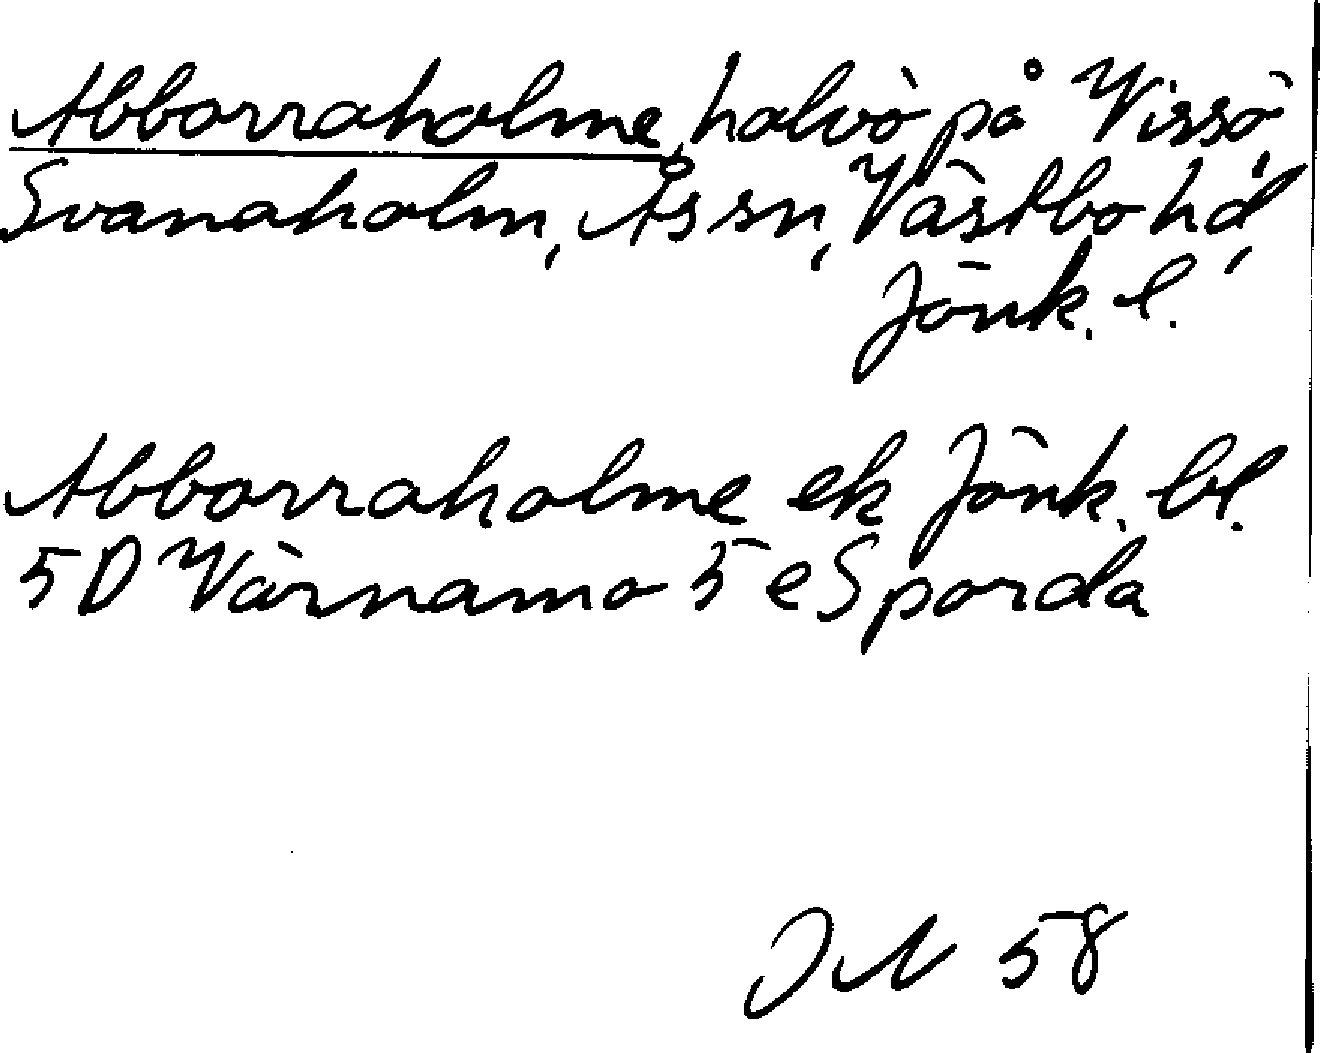 Abborraholme, halvö på Vissö,
Svanaholm, Ås sn, Västbo hd,
Jönk. l.
Abborraholme ek Jönk. bl.
5D Värnamo 5 e Sporda
58